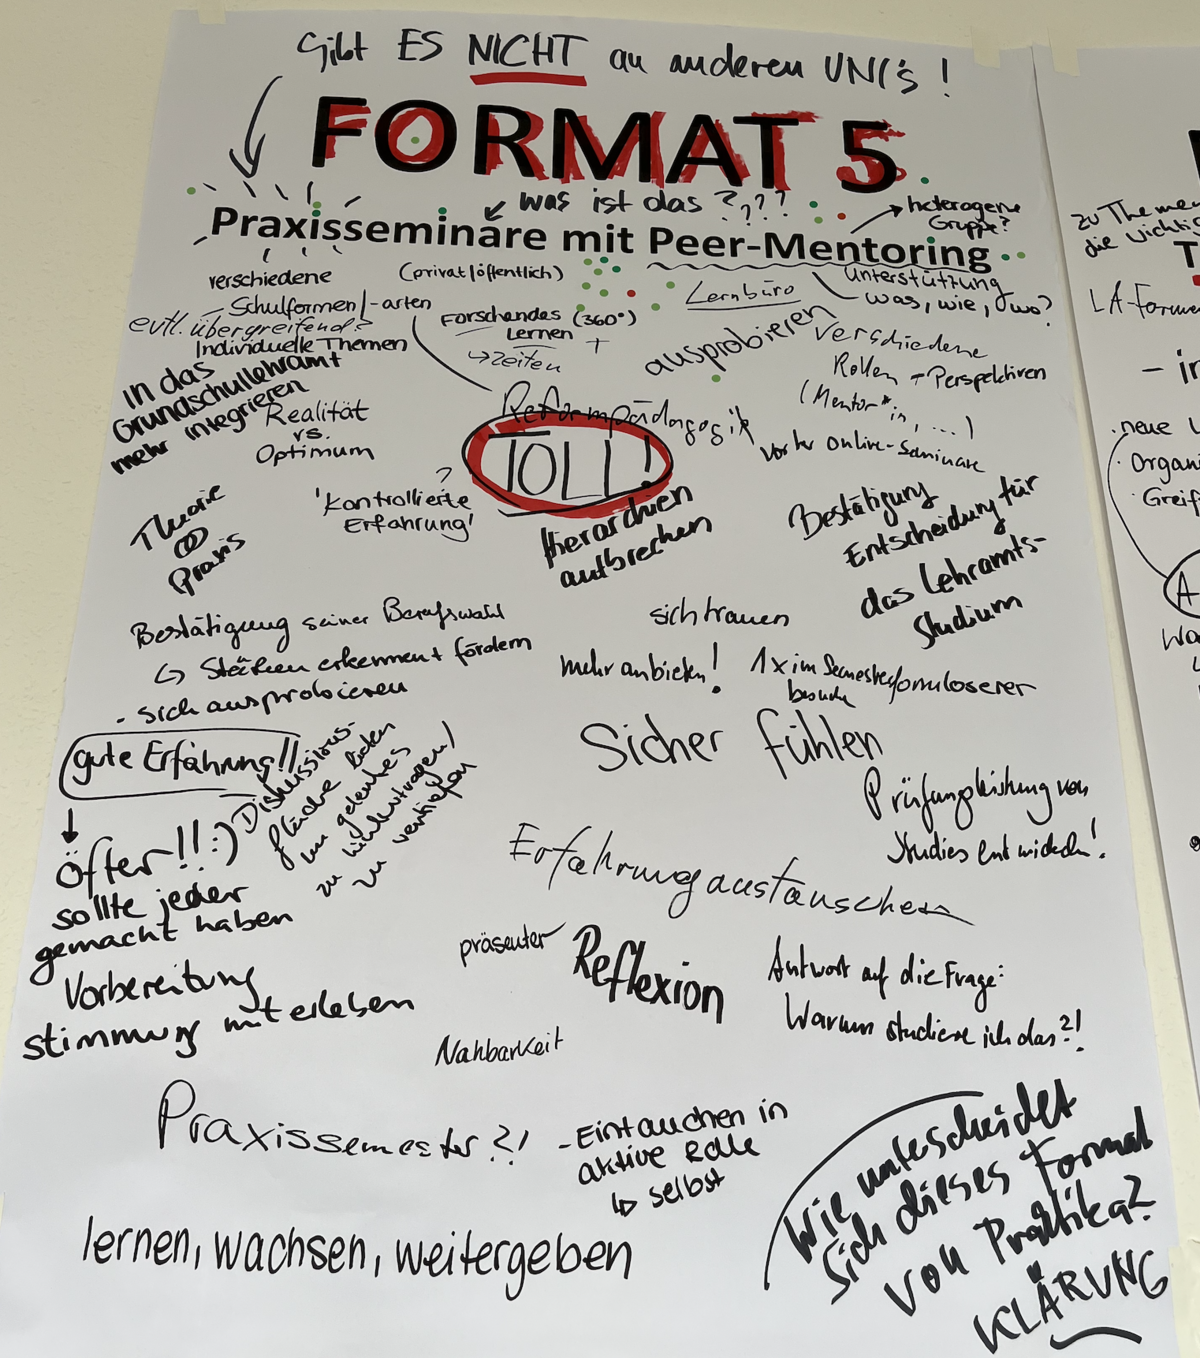 Gibt ES NICHT an anderen UNI's !
FORMAT 5
was ist das ????
Praxisseminare mit Peer-Mentoring
heterogene
Gruppe?
verschiedene
Schulformen/-arten
(privat/öffentlich)
evtl. übergreifend?
Individuelle Themen
Forschendes (360°)
Lernen +
→ Zeiten
Lernbüro
Unterstützung
was, wie, wo?
ausprobieren
verschiedene
Rollen - Perspektiven
(Mentor*in, ...)
vorher Online-Seminare
in das
Grundschullehramt
mehr integrieren
Realität
vs.
Optimum
Reformpädagogik
TOLL!
?
'Kontrollierte
Erfahrung'
Theorie
Praxis
Hierarchien
aufbrechen
Bestätigung
Entscheidung für
das Lehramts-
studium
Bestätigung seiner Berufswahl
↳ Stärken erkennen + fördern
- sich ausprobieren
sich trauen
mehr anbieten!
1x im Semester formloserer
besuche
gute Erfahrung!!
Öfter!! :)
sollte jeder
gemacht haben
Diskussions-
fläche bieten
um gelerntes
zu vertiefen
Sicher fühlen
Prüfungsleistung von
Studies entwickeln!
Erfahrung austauschen
präsenter
Reflexion
Antwort auf die Frage:
Warum studiere ich das?!
Vorbereitung
stimmung miterleben
Nahbarkeit
Praxissemester?!
- Eintauchen in
aktive Rolle
↳ selbst
Wie unterscheidet
sich dieses Format
von Praktika?
KLÄRUNG
lernen, wachsen, weitergeben
zu Themen
die wichtig
T
neue